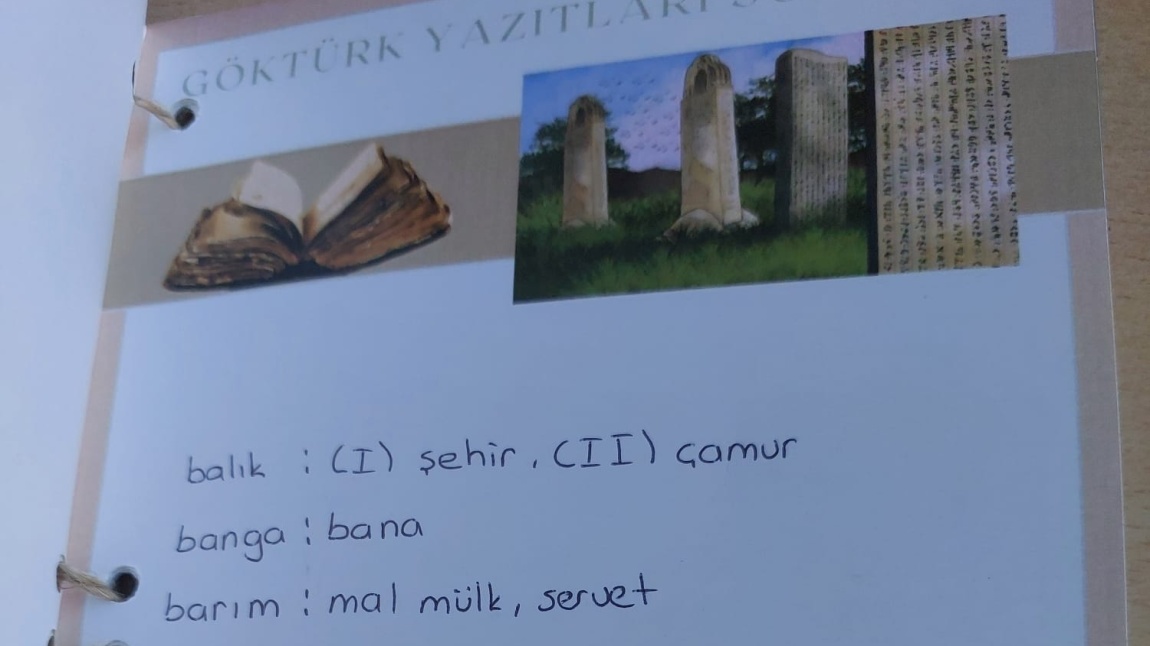 GÖKTÜRK YAZITLARI
balık : (I) şehir, (II) çamur
banga : bana
barım : mal mülk, servet